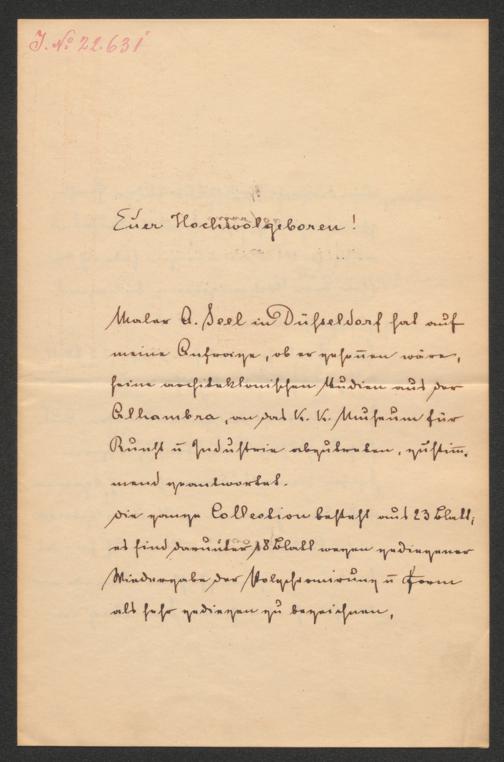 J. No 22.631
Euer Hochwolgeboren!
Maler A. Seel in Düsseldorf hat auf
meine Anfrage, ob er gesonnen wäre,
seine architektonischen Studien aus der
Alhambra, an das K. K. Museum für
Kunst u Industrie abzutreten, zustim-
mend geantwortet.
Die ganze Collection besteht aus 23 Blatt;
es sind darunter 18 Blatt wegen gediegener
Wiedergabe der Polychromirung u Form
als sehr gediegen zu bezeichnen,